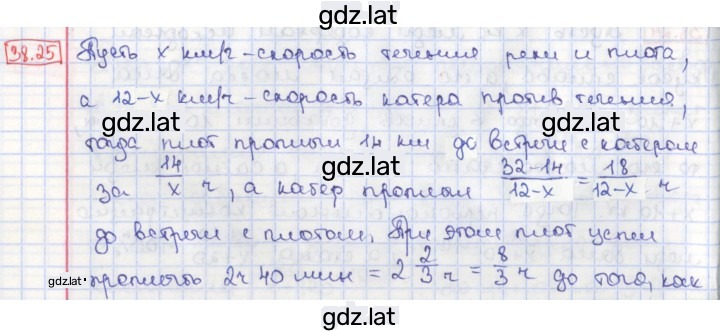 gdz.lat
38.25 Пусть x км/ч – скорость течения реки и плота,
gdz.lat
а 12-x км/ч – скорость катера против течения,
gdz.lat
gdz.lat
тогда плот проплыл 14 км до встречи с катером
gdz.lat
за 14/x ч, а катер проплыл (32-14)/(12-x) = 18/(12-x) ч
gdz.lat
до встречи с плотом. При этом плот успел
gdz.lat
gdz.lat
проплыть 2ч 40 мин = 2 2/3 ч = 8/3 ч до того, как
gdz.lat